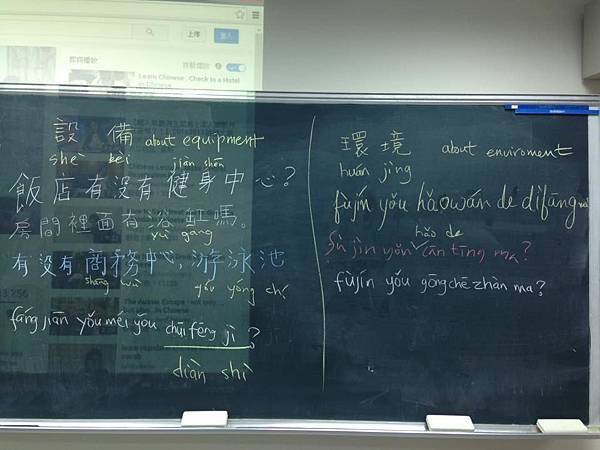 Learn Chinese , Check In a Hotel
設備 about equipment
shè bèi jiàn shēn
飯店有没有健身中心?
房間裡面有浴缸嗎。
yù gāng
有没有商務中心,游泳池
shāng wù yóu yǒng chí
fáng jiān yǒu méi yǒu chuī fēng jī ?
diàn shì
環境 about enviroment
huán jìng
fùjìn yǒu hǎowán de dìfāng ma
hǎo de
fù jìn yǒu cān tīng ma?
fùjìn yǒu gōngchē zhàn ma?